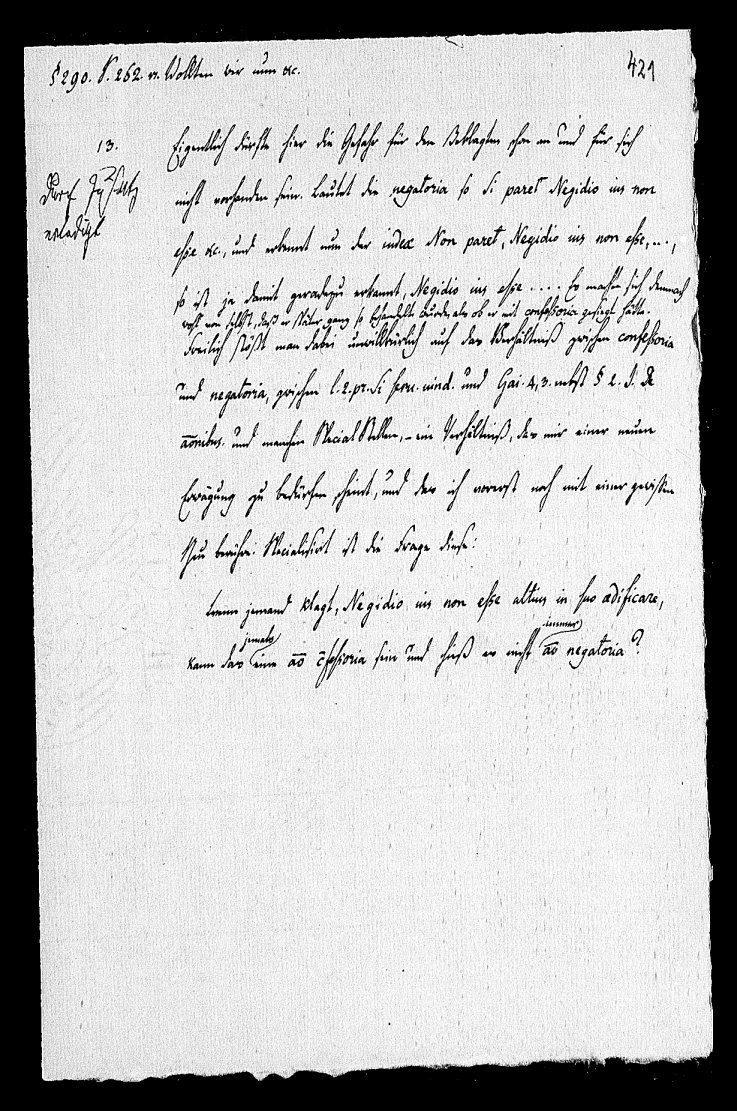 § 290. S. 262. vs. Wollten wir nun &c.
421
13.
durch Zusatz
erledigt
Eigentlich dürfte hier die Gefahr für den Beklagten schon an und für sich
nicht vorhanden sein. Lautet die negatoria so Si paret Negidio ius non
esse &c., und erkennt nun der iudex Non paret, Negidio ius non esse, ...,
so ist ja damit geradezu erkannt, Negidio ius esse .... Es machte sich demnach
wohl von selbst, daß er später ganz so behandelt wurde, als ob er mit confessoria gesiegt hätte.
Freilich stößt man dabei unwillkürlich auf das Verhältniß zwischen confessoria
und negatoria, zwischen l. 2. pr. Si serv. vind. und Gai. 4, 3. nebst § 2. J. De
aōnibus. und manchen Special Stellen, – ein Verhältniß, das mir einer neuen
Erwägung zu bedürfen scheint, und das ich vorerst noch mit einer gewissen
Scheu berühre. Specialisirt ist die Frage diese:
wenn jemand klagt, Negidio ius non esse altius in suo ædificare,
jemals immer
kann das eine aō c̄fessoria sein und hieß es nicht aō negatoria?